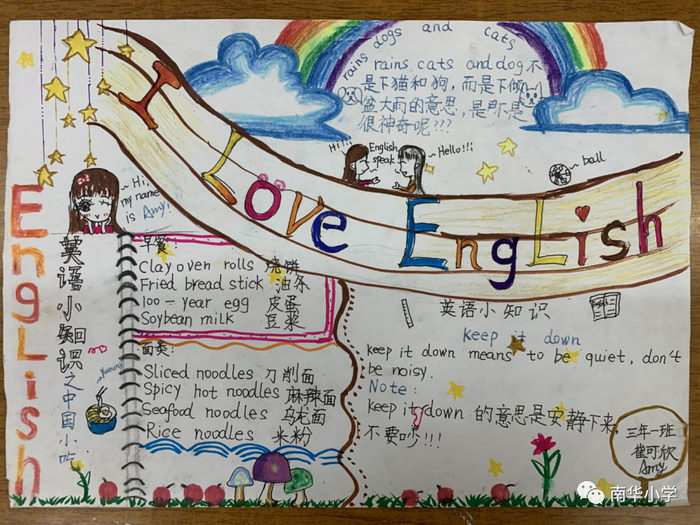 rains dogs and cats
rains cats and dog不
是下猫和狗，而是下倾
盆大雨的意思，是不是
很神奇呢???
I Love English
Hi!!
English
speak
Hello!!!
ball
Hi,
my name
is Amy!
English
英语小知识之中国小吃
早餐:
Clay oven rolls 烧饼
Fried bread stick 油条
100-year egg 皮蛋
Soybean milk 豆浆
面类:
Sliced noodles 刀削面
Spicy hot noodles 麻辣面
Seafood noodles 乌龙面
Rice noodles 米粉
英语小知识
keep it down
keep it down means to be quiet, don't
be noisy.
Note:
keep it down 的意思是安静下来,
不要吵!!!
三年一班
崔可欣
Amy
南华小学